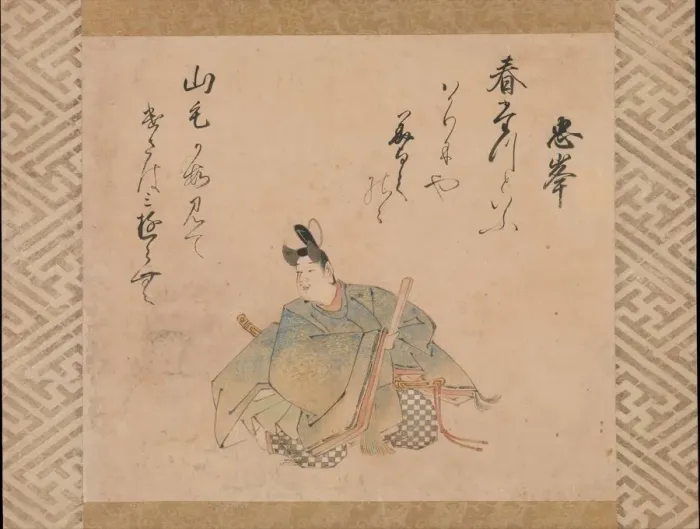 忠峯
春たつといふ
はかりにや
みよし
のゝ
山もかすみて
けさはみゆらむ